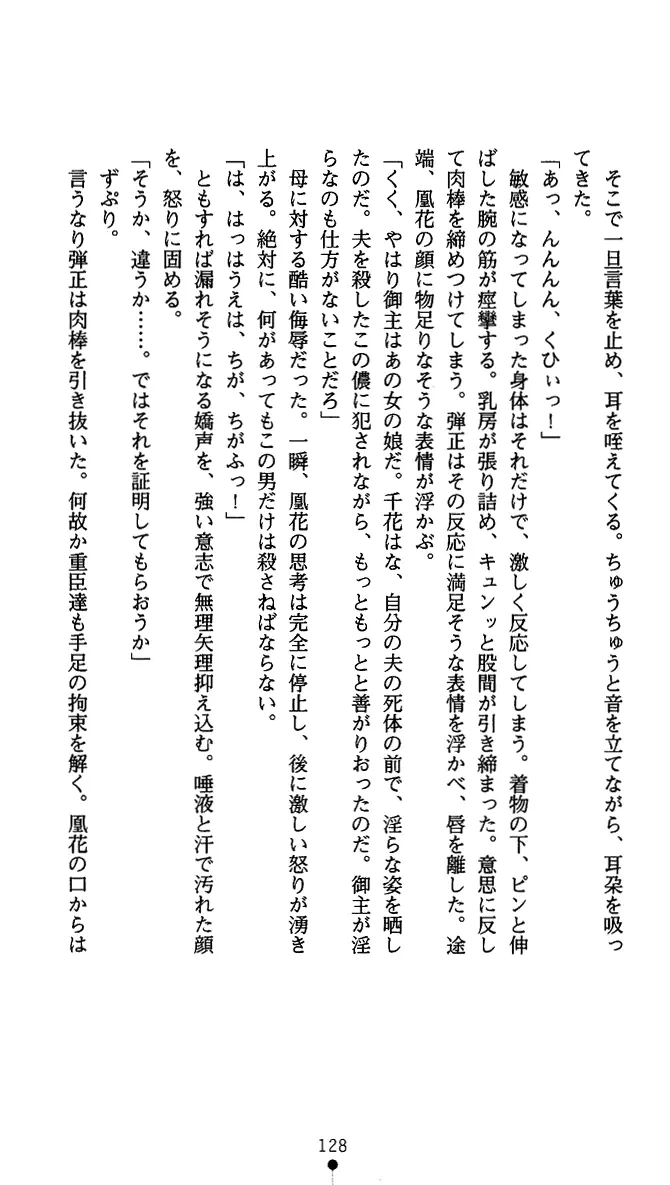 そこで一旦言葉を止め、耳を咥えてくる。ちゅうちゅうと音を立てながら、耳朶を吸っ
てきた。
「あっ、んんんん、くひぃっ！」
敏感になってしまった身体はそれだけで、激しく反応してしまう。着物の下、ピンと伸
ばした腕の筋が痙攣する。乳房が張り詰め、キュンッと股間が引き締まった。意思に反し
て肉棒を締めつけてしまう。弾正はその反応に満足そうな表情を浮かべ、唇を離した。途
端、凰花の顔に物足りなそうな表情が浮かぶ。
「くく、やはり御主はあの女の娘だ。千花はな、自分の夫の死体の前で、淫らな姿を晒し
たのだ。夫を殺したこの儂に犯されながら、もっともっとと善がりおったのだ。御主が淫
らなのも仕方がないことだろ」
母に対する酷い侮辱だった。一瞬、凰花の思考は完全に停止し、後に激しい怒りが湧き
上がる。絶対に、何があってもこの男だけは殺さねばならない。
「は、はっはうえは、ちが、ちがふっ！」
ともすれば漏れそうになる嬌声を、強い意志で無理矢理抑え込む。唾液と汗で汚れた顔
を、怒りに固める。
「そうか、違うか……。ではそれを証明してもらおうか」
ずぷり。
言うなり弾正は肉棒を引き抜いた。何故か重臣達も手足の拘束を解く。凰花の口からは
128